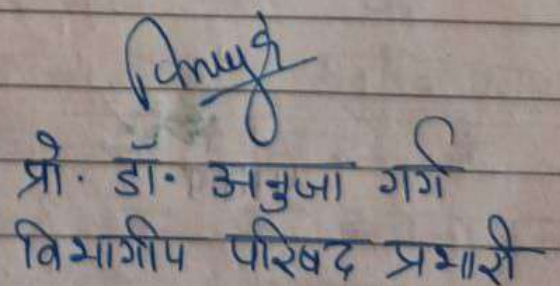 प्रो. डॉ. अनुजा गर्ग
विभागीय परिषद प्रभारी